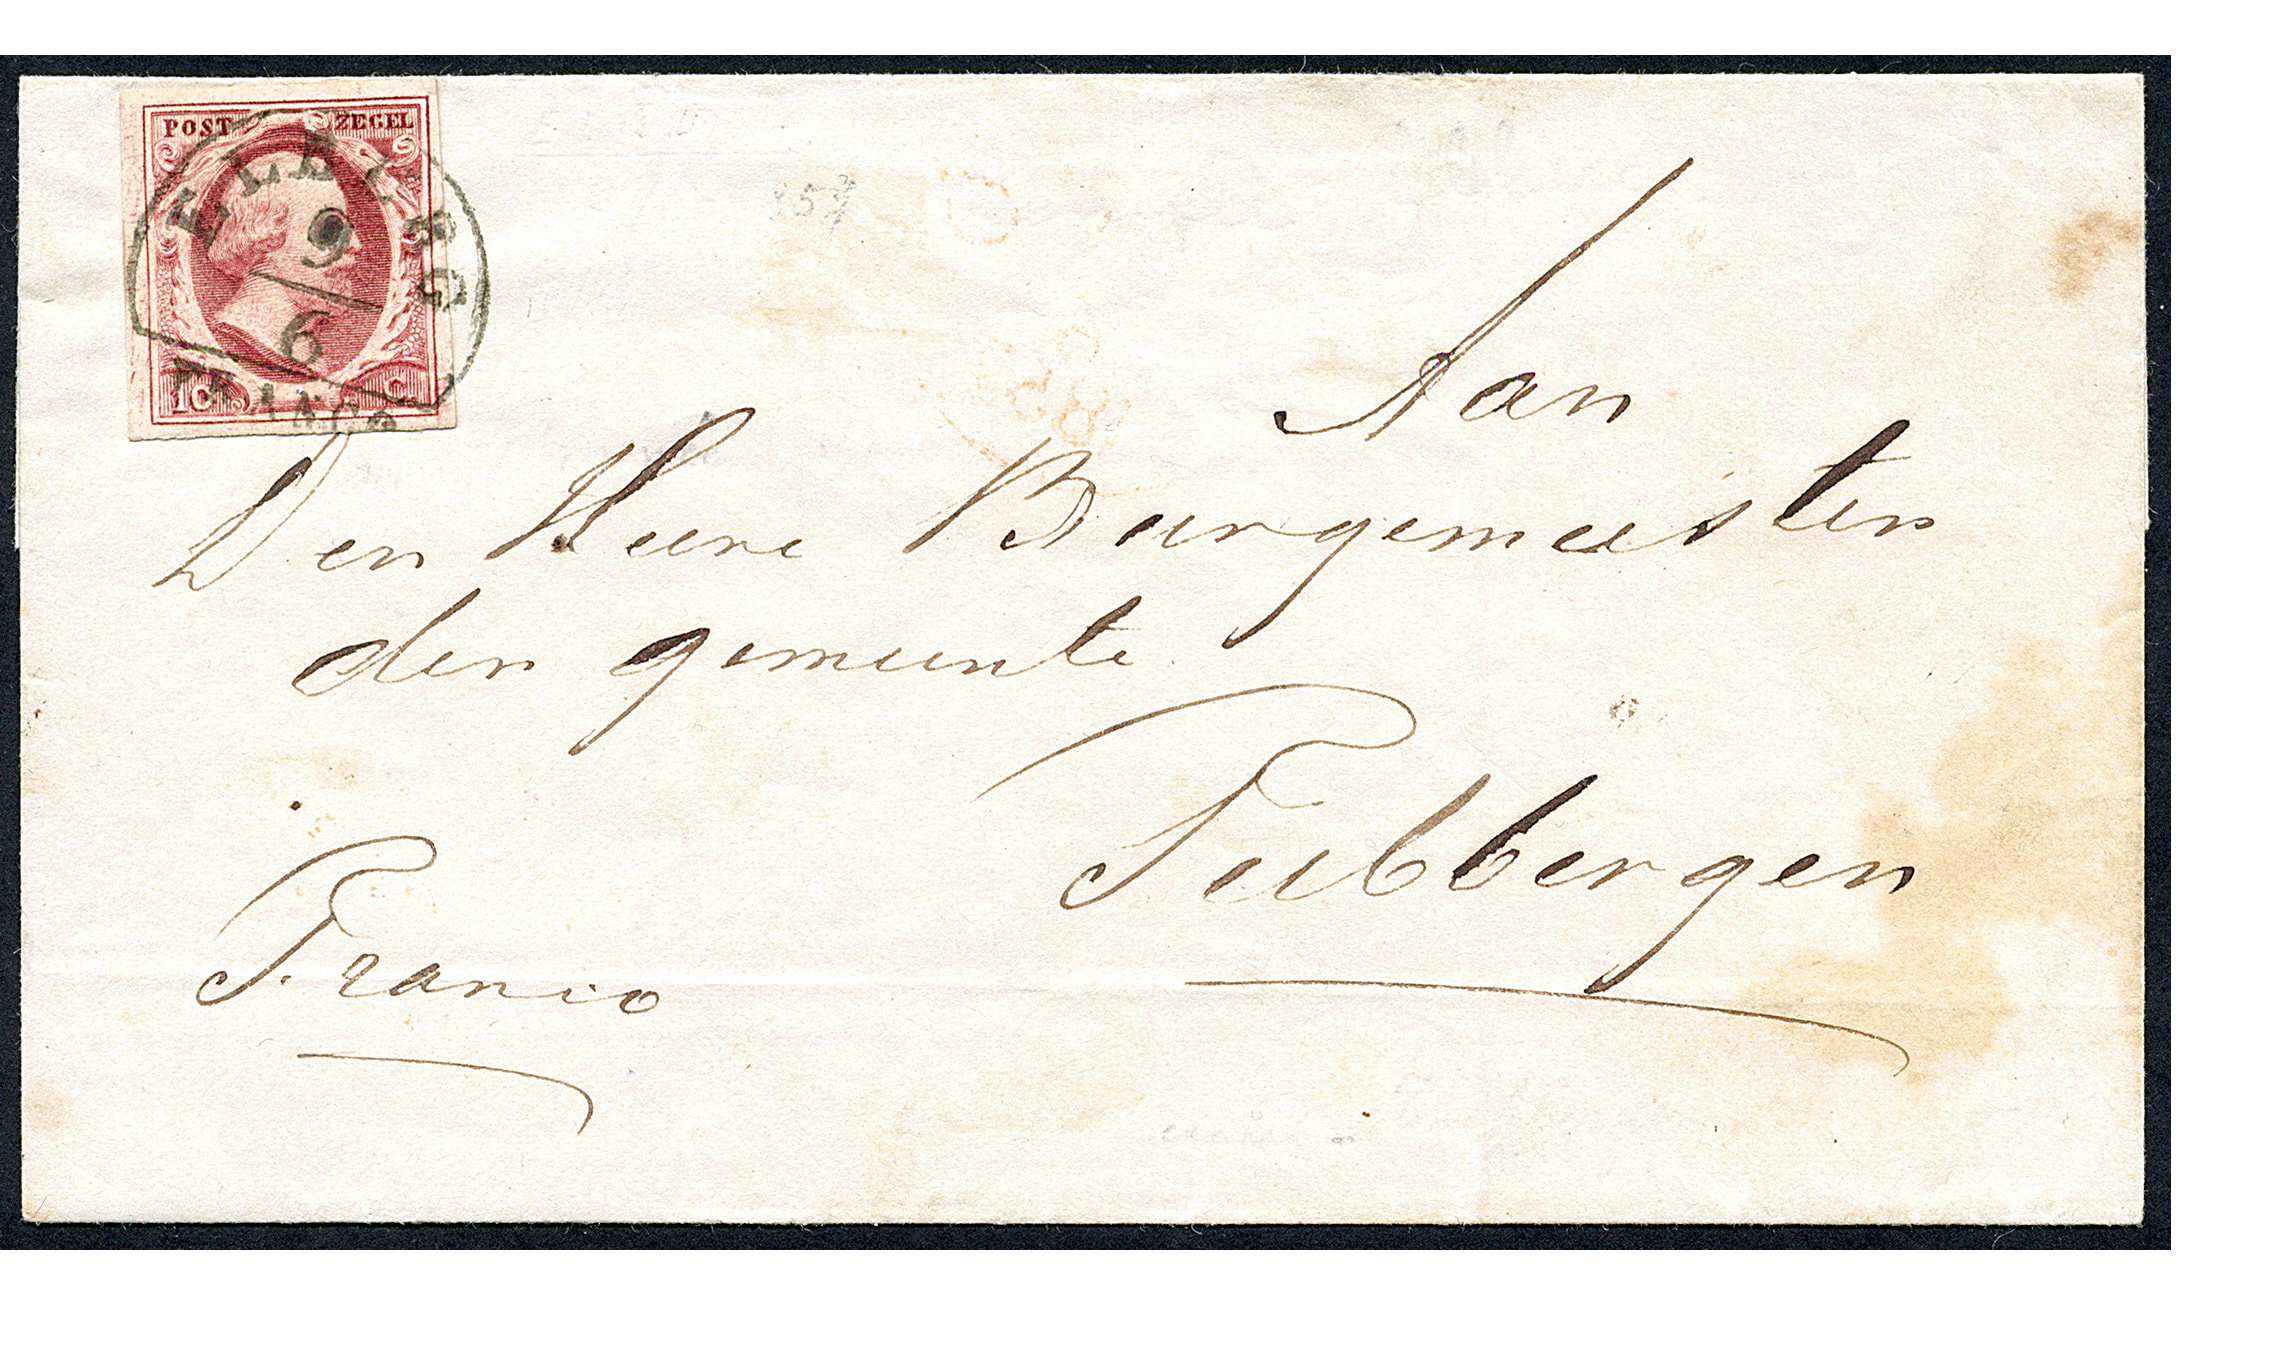 POST ZEGEL
9
6
FRANCO
10 C.
Aan
Den Heere Burgemeester
der gemeente
Tubbergen
Franco